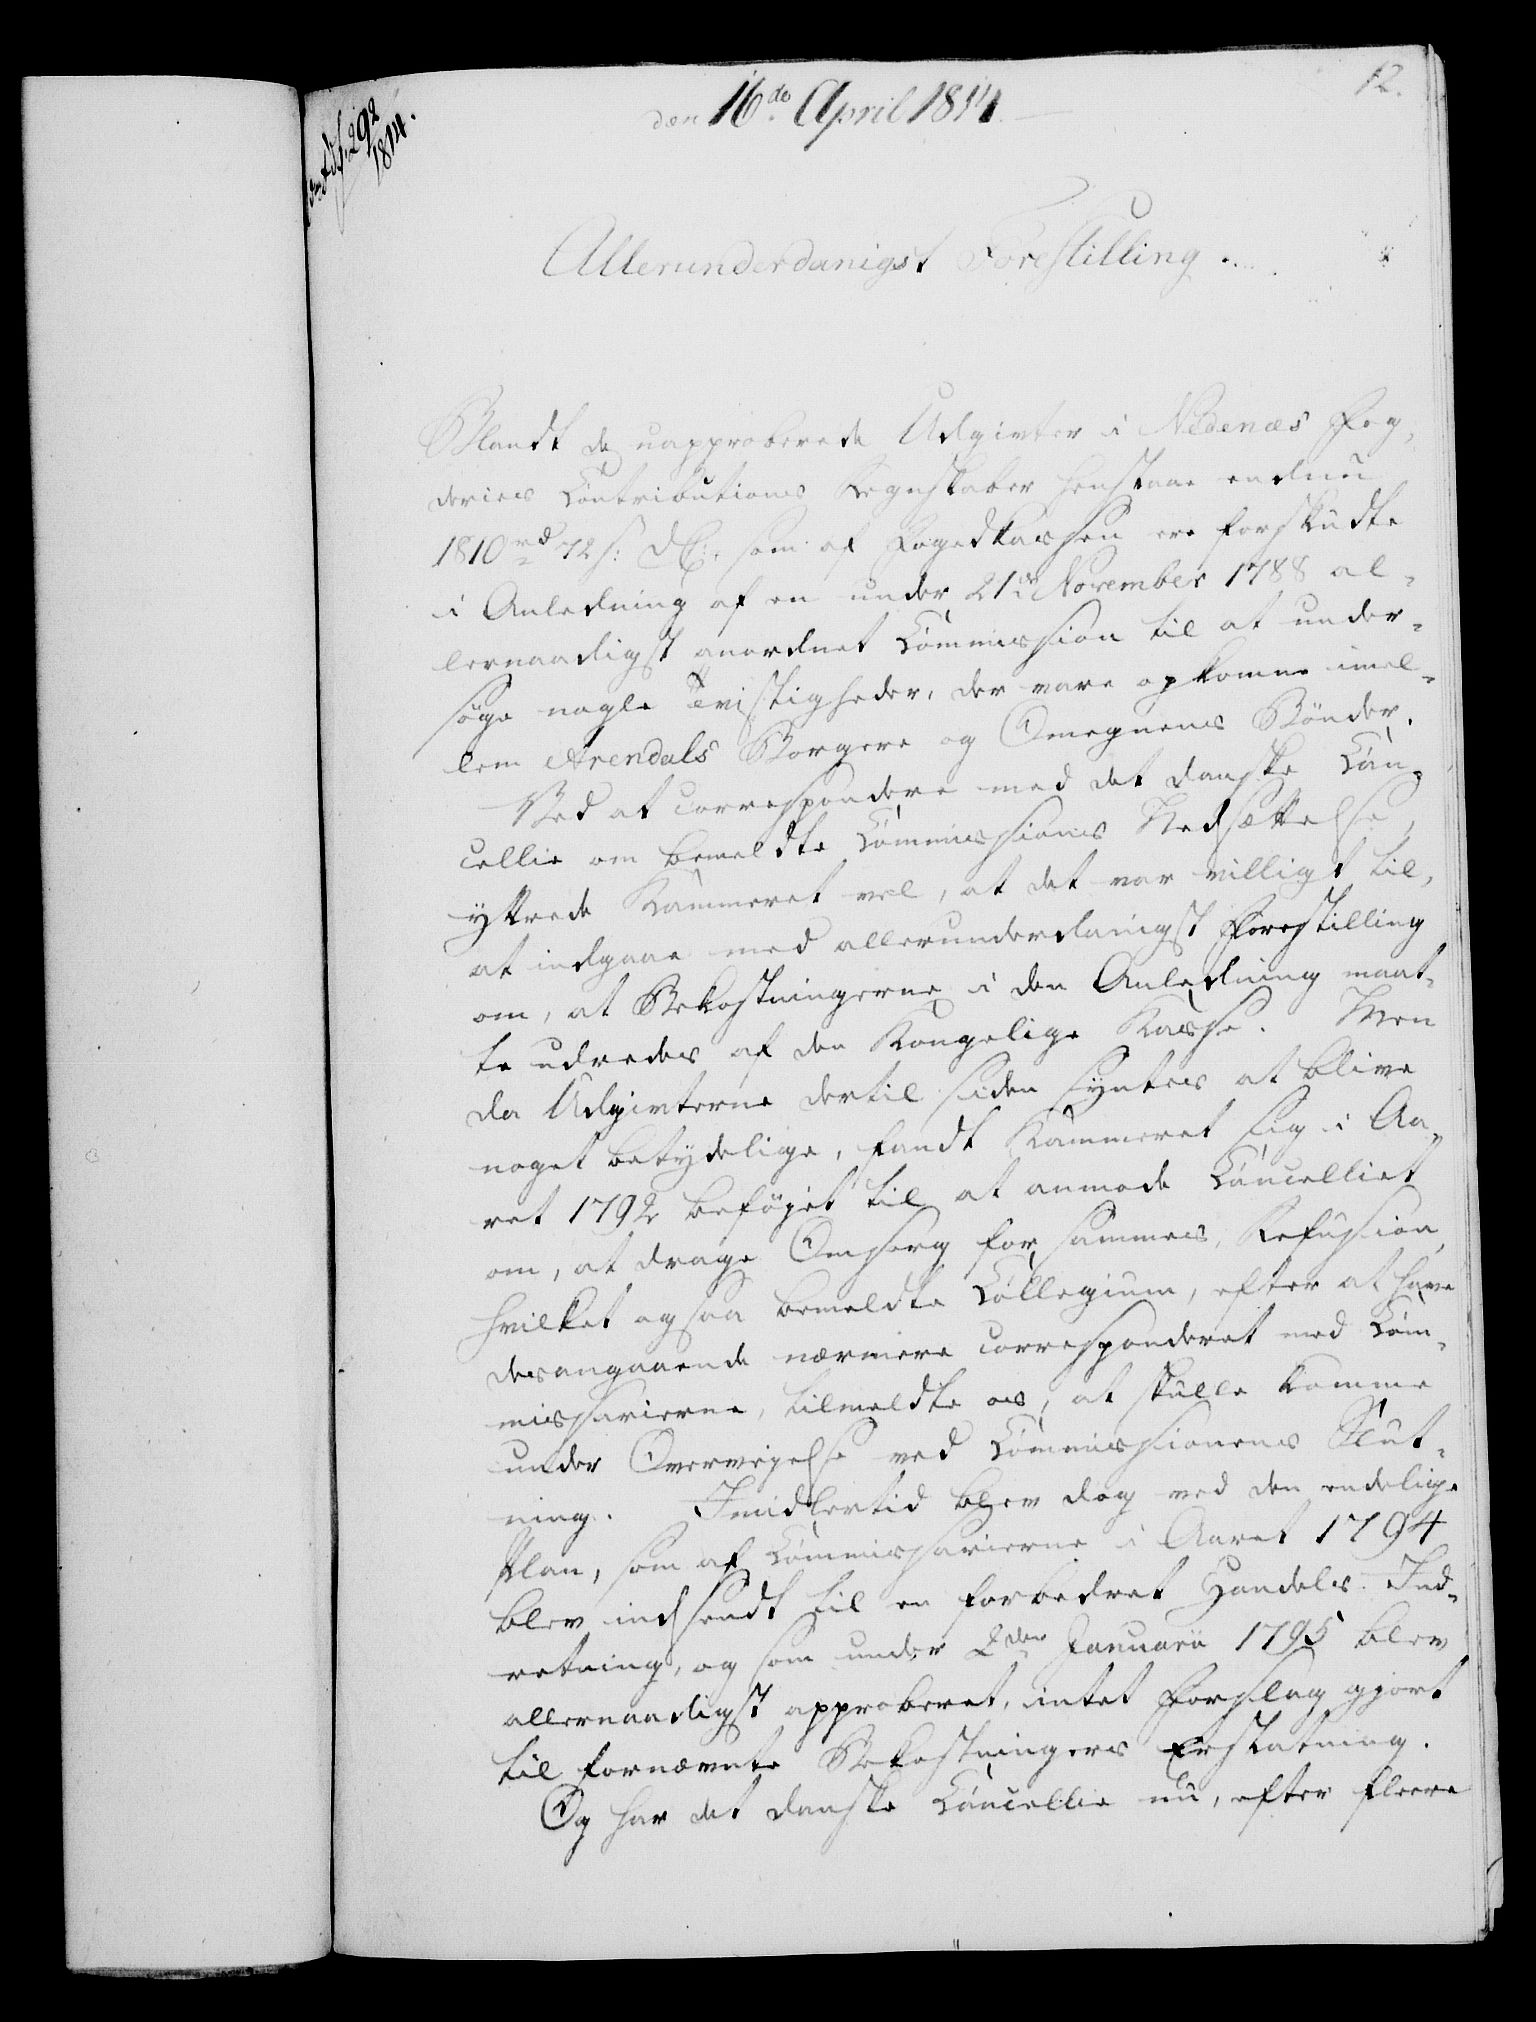 12.
den 16de April 1814.
292
1814.
Allerunderdanigst Forestilling.
Blandt de uapproberede Udgivter i Nedenæs Fog-
deries Contributions Regnskaber henstaae endnu
1810 rd 72 s: som af Fogedkassen ere forskudte
i Anledning af en under 21de November 1788 al-
lernaadigst anordnet Commission til at under-
søge nogle Tvistigheder, der vare opkomne imel-
lem Arendals Borgere og Omegnens Bönder.
Ved at correspondere med det danske Can-
cellie om bemeldte Commissions Nedsættelse,
yttrede Kammeret vel, at det var villigt til,
at indgaae med allerunderdanigst Forestilling
om, at Bekostningerne i den Anledning maat-
te udredes af den Kongelige Kasse. Men
da Udgivterne dertil siden syntes at blive
noget betydelige, fandt Kammeret sig i Aa-
ret 1792 beföjet til at anmode Cancelliet
om, at drage Omsorg for sammes Refusion,
hvilket ogsaa bemeldte Collegium, efter at have
desangaaende nærmere corresponderet med Com-
missarierne, tilmeldte os, at skulle komme
under Overvejelse ved Commissionens Slut-
ning. Imidlertid blev dog ved den endelige
Plan, som af Commissarierne i Aaret 1794
blev indsendt til en forbedret Handels-Ind-
retning, og som under 2den Januarii 1795 blev
allernaadigst approberet, intet Forslag gjort
til fornævnte Bekostningers Erstatning.
Og har det danske Cancellie nu, efter fleere